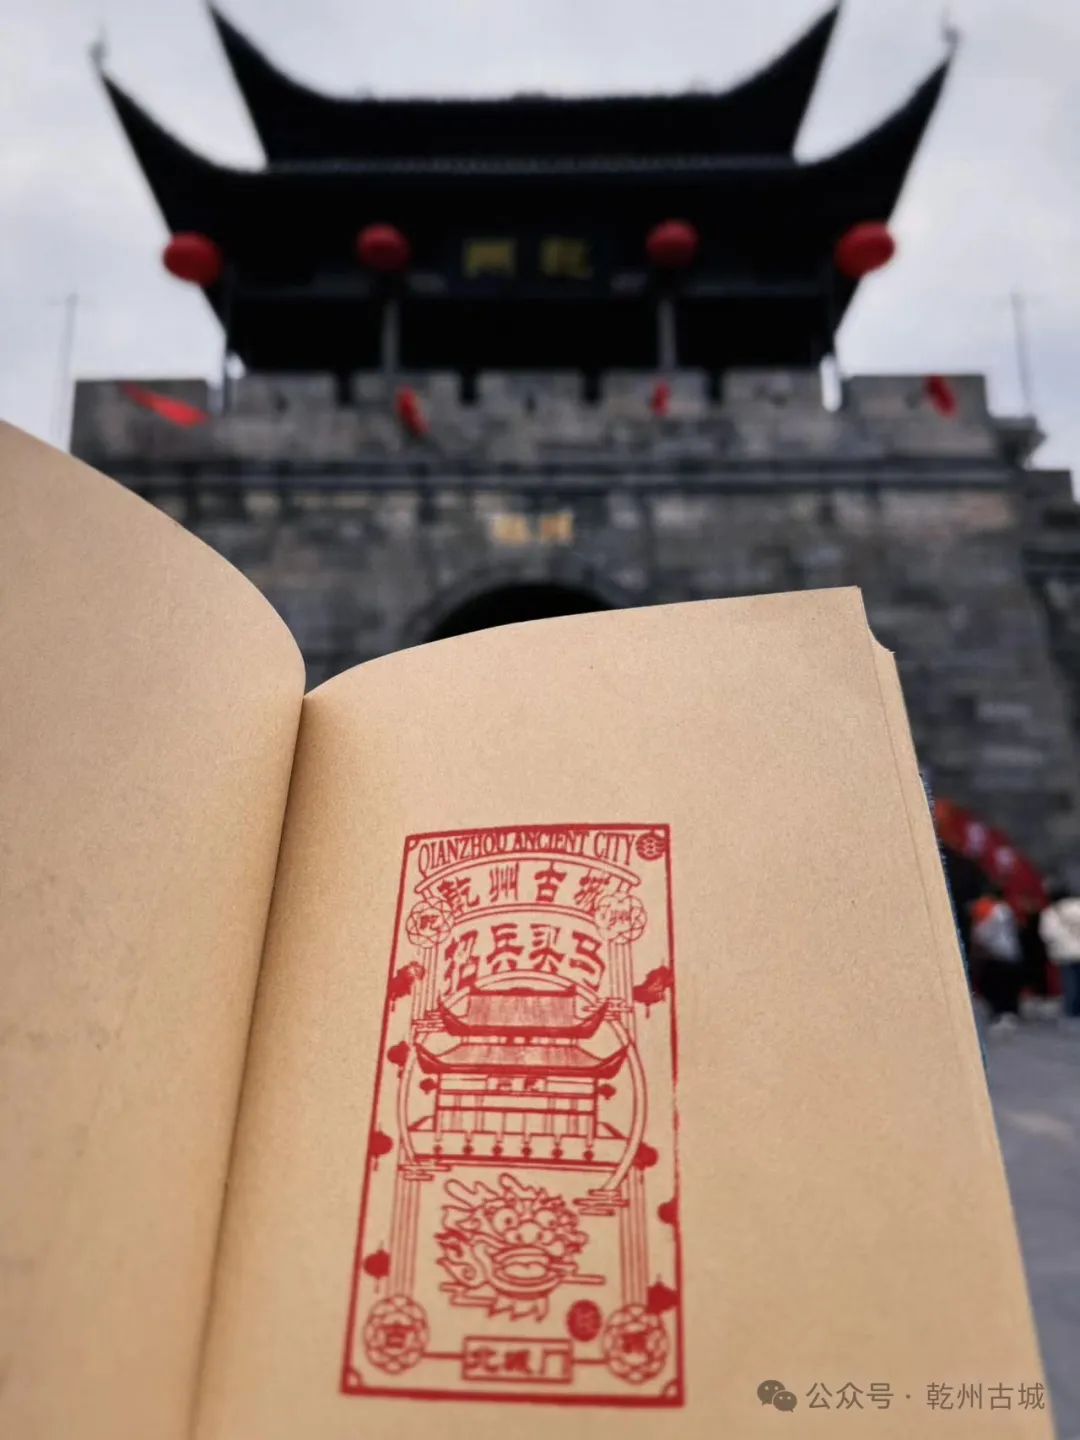 乾州
QIANZHOU ANCIENT CITY
乾州古城
乾
州
招兵买马
古
城
北城门
公众号 · 乾州古城